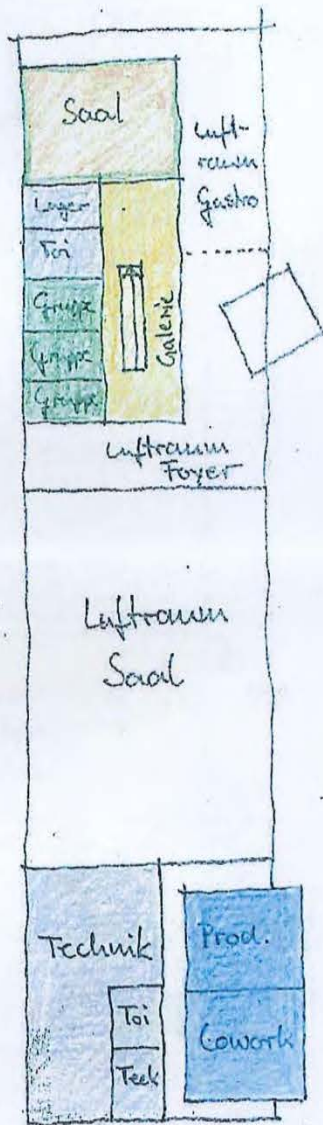 Saal
Luft-
raum
Gastro
Lager
Toi
Gruppe
Gruppe
Gruppe
Galerie
Luftraum
Foyer
Luftraum
Saal
Technik
Prod.
Toi
Cowork